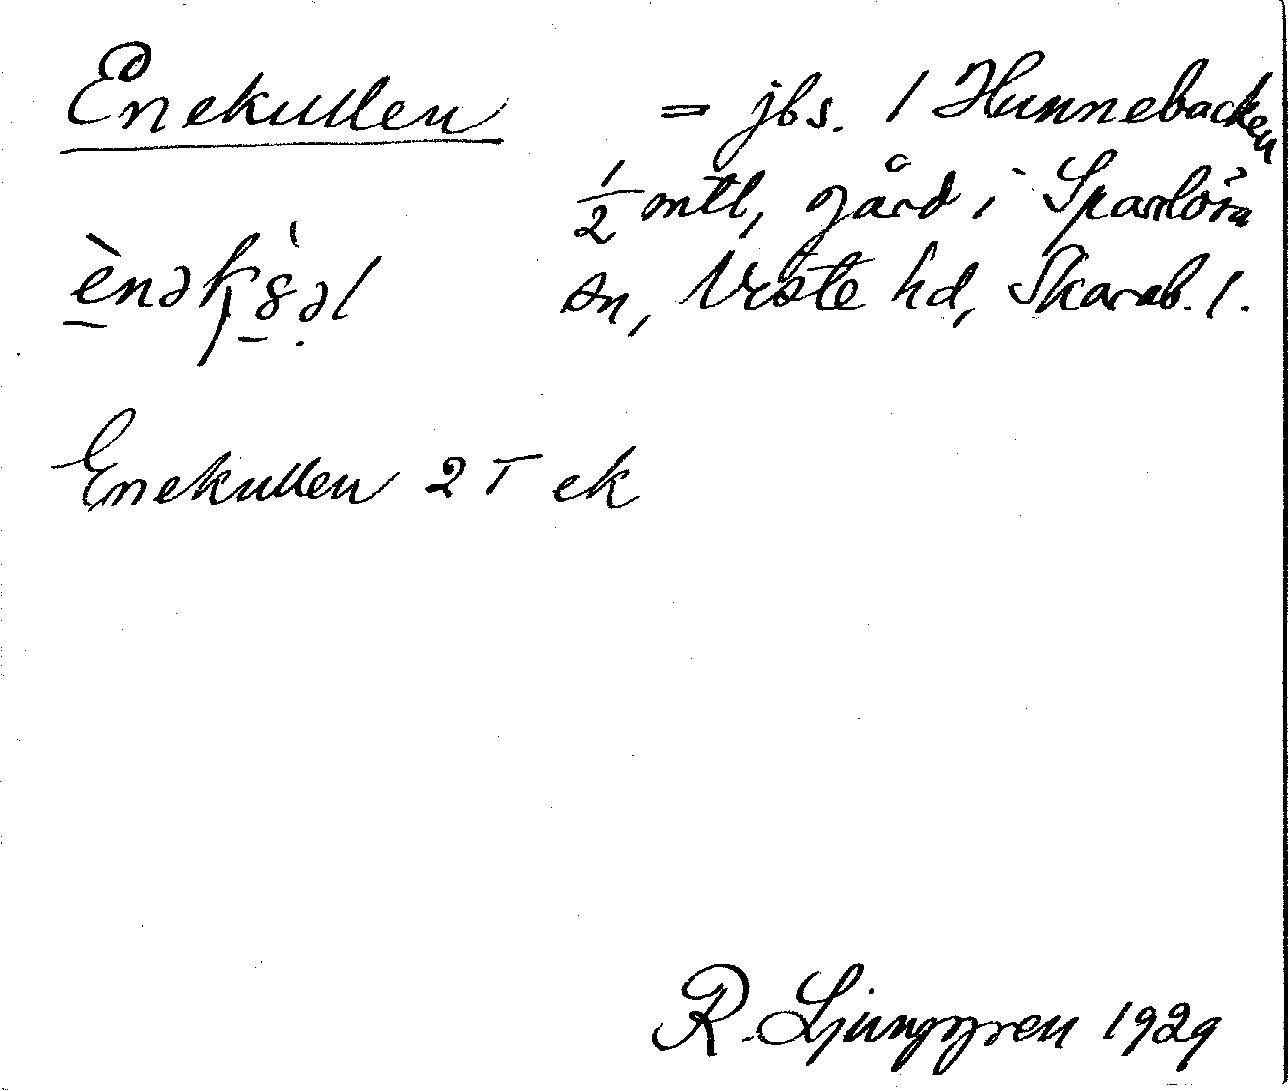 Enekullen = jbs. 1 Hunnebacken
½ mtl, gård i Sparlösa
sn, Viste hd, Skarab. l.
Enekullen 2 T ek
R. Ljunggren 1929